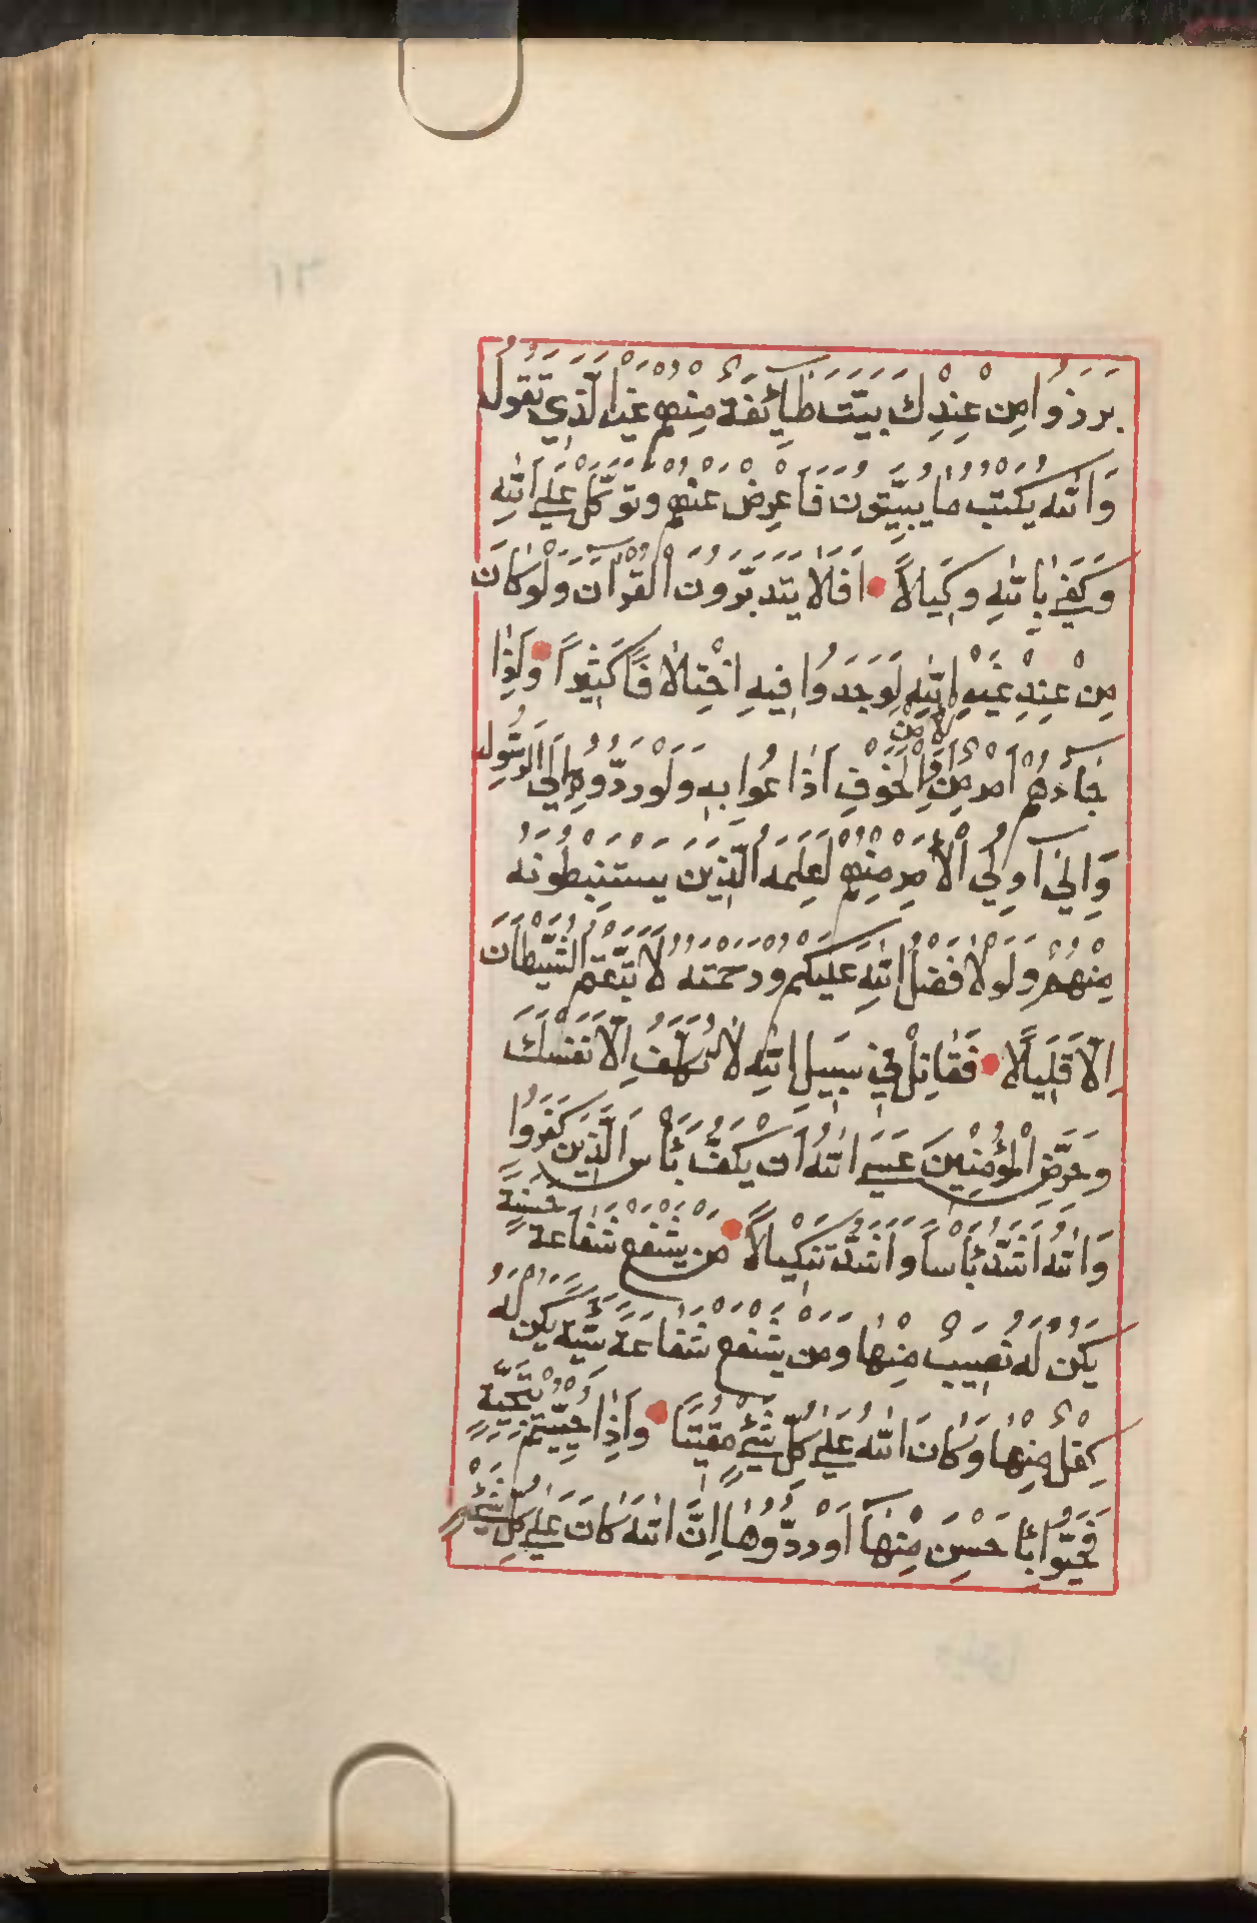 بَرَزُوا مِنْ عِنْدِكَ بَيَّتَ طَآئِفَةٌ مِنْهُمْ غَيْرَ الَّذِي تَقُولُ
وَاللّٰهُ يَكْتُبُ مَا يُبَيِّتُونَ فَاَعْرِضْ عَنْهُمْ وَتَوَكَّلْ عَلَى اللّٰهِ
وَكَفٰى بِاللّٰهِ وَكِيلاً اَفَلَا يَتَدَبَّرُونَ الْقُرْآنَ وَلَوْ كَانَ
مِنْ عِنْدِ غَيْرِ اللّٰهِ لَوَجَدُوا فِيهِ اخْتِلَافًا كَثِيرًا وَاِذَا
جَآءَهُمْ اَمْرٌ مِنَ الْاَمْنِ اَوِ الْخَوْفِ اَذَاعُوا بِهِ وَلَوْ رَدُّوهُ اِلَى الرَّسُولِ
وَاِلٰى اُولِي الْاَمْرِ مِنْهُمْ لَعَلِمَهُ الَّذِينَ يَسْتَنْبِطُونَهُ
مِنْهُمْ وَلَوْلَا فَضْلُ اللّٰهِ عَلَيْكُمْ وَرَحْمَتُهُ لَاتَّبَعْتُمُ الشَّيْطَانَ
اِلَّا قَلِيلًا فَقَاتِلْ فِي سَبِيلِ اللّٰهِ لَا تُكَلَّفُ اِلَّا نَفْسَكَ
وَحَرِّضِ الْمُؤْمِنِينَ عَسَى اللّٰهُ اَنْ يَكُفَّ بَأْسَ الَّذِينَ كَفَرُوا
وَاللّٰهُ اَشَدُّ بَأْسًا وَاَشَدُّ تَنْكِيلاً مَنْ يَشْفَعْ شَفَاعَةً حَسَنَةً
يَكُنْ لَهُ نَصِيبٌ مِنْهَا وَمَنْ يَشْفَعْ شَفَاعَةً سَيِّئَةً يَكُنْ لَهُ
كِفْلٌ مِنْهَا وَكَانَ اللّٰهُ عَلٰى كُلِّ شَيْءٍ مُقِيتًا وَاِذَا حُيِّيتُمْ بِتَحِيَّةٍ
فَحَيُّوا بِأَحْسَنَ مِنْهَا اَوْ رُدُّوهَا اِنَّ اللّٰهَ كَانَ عَلٰى كُلِّ شَيْءٍ